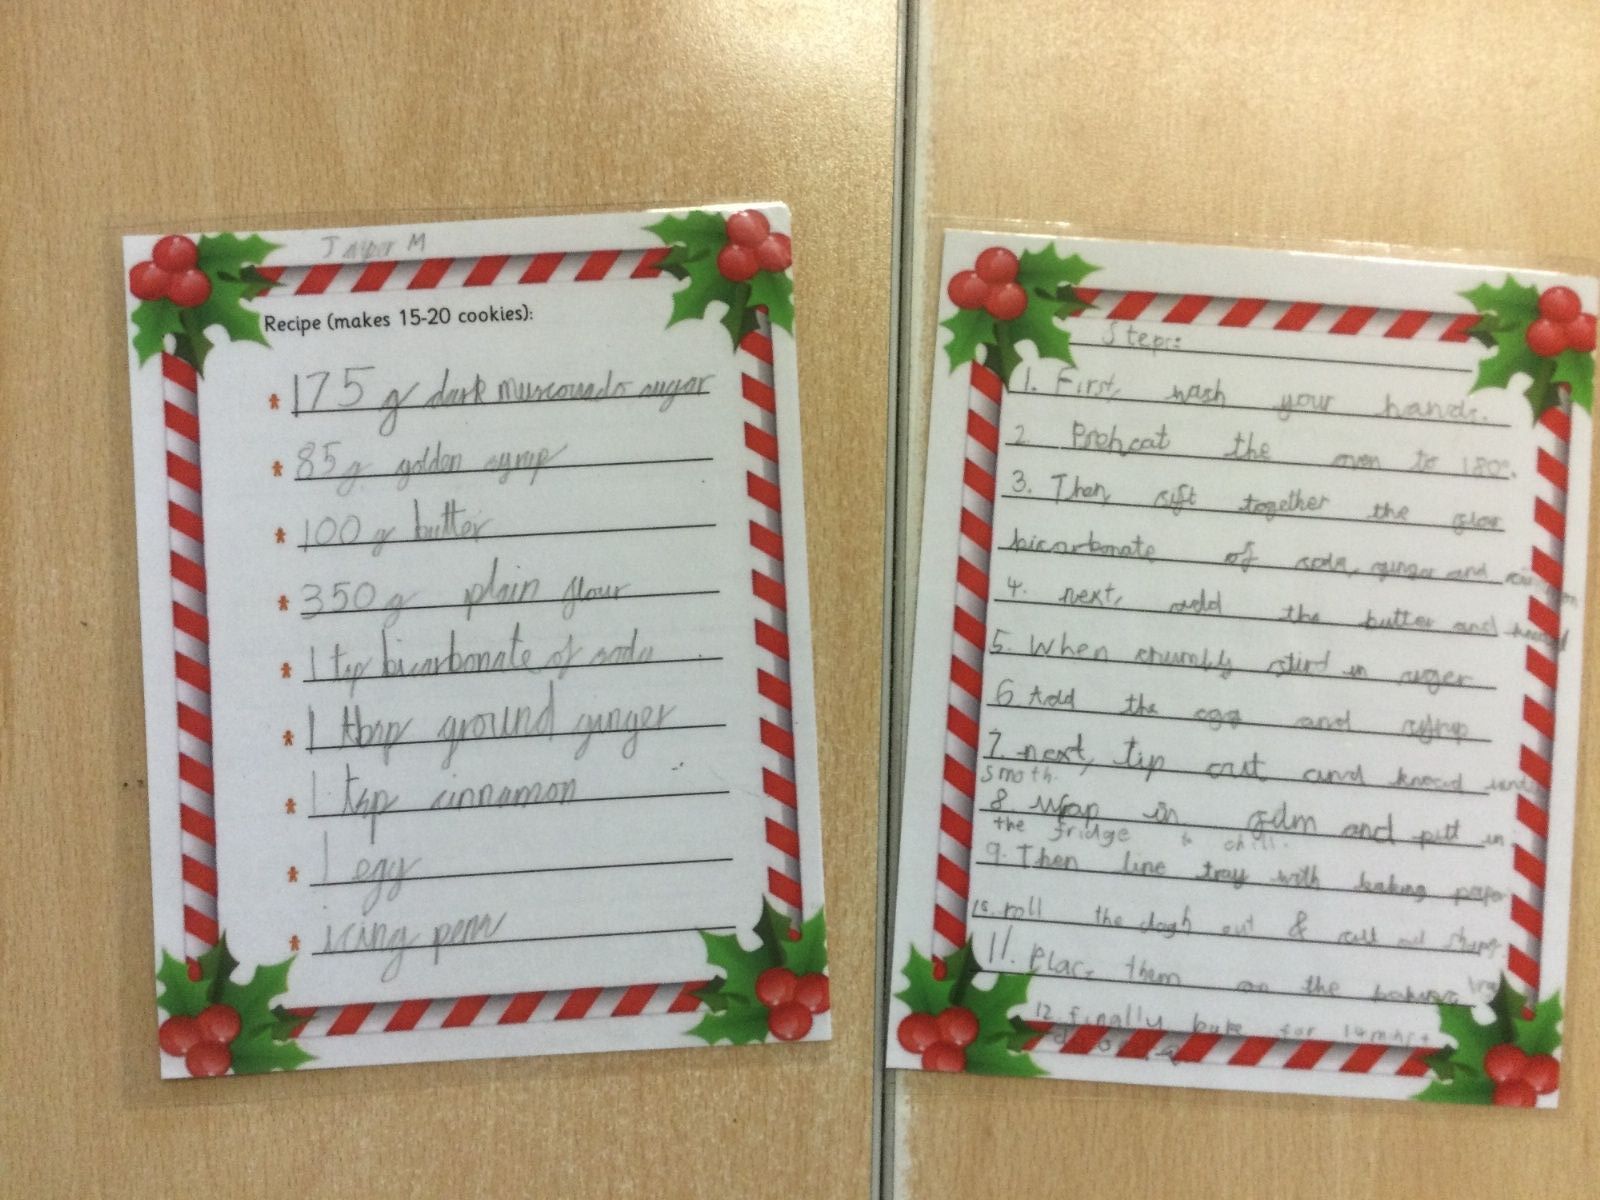 Jasper M
Recipe (makes 15-20 cookies):
175 g dark muscovado sugar
85 g golden syrup
100 g butter
350 g plain flour
1 tsp bicarbonate of soda
1 tbsp ground ginger
1 tsp cinnamon
1 egg
icing pens
Steps:
1. First, wash your hands.
2. Preheat the oven to 180°.
3. Then, sift together the
bicarbonate of soda, ginger and
4. next, add the butter and
5. When crumbly in
6 Add the egg and syrup
7. next, tip out and knead
smoth.
8. Wrap in and putt in
the fridge to chill.
9. Then line tray with baking
10. roll the out &
11. Place them on the baking
12. finally bake for